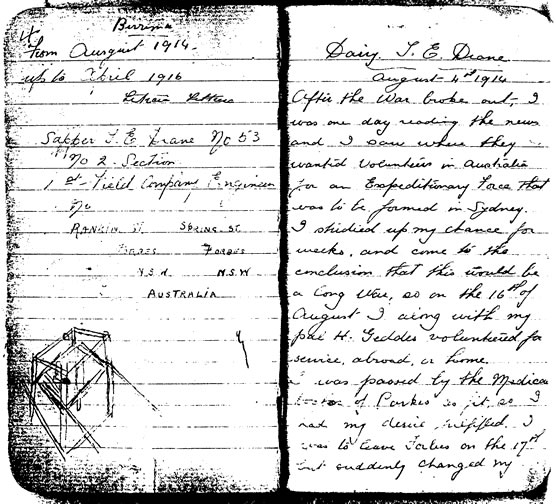 4
Burma
From August 1914.
up to April 1916
Sapper T. E. Drane No 53
No 2. Section
1st Field Company Engineer
No
RANKIN ST. SPRING ST.
FORBES FORBES
N.S.W N.S.W
AUSTRALIA
Dairy. T. E. Drane
August 4th 1914
After the War broke out, I
was one day reading the news
and I saw where they
wanted Volunteers in Australia
for an Expeditionary Force that
was to be formed in Sydney.
I studied up my chance for
weeks, and come to the
conclusion that this would be
a long War, so on the 16th of
August I along with my
pal H. Geddes volunteered for
service, abroad, or home.
I was passed by the Medical
Doctor of Parkes as fit, so I
had my desire fulfilled. I
was to leave Forbes on the 17th
but suddenly changed my